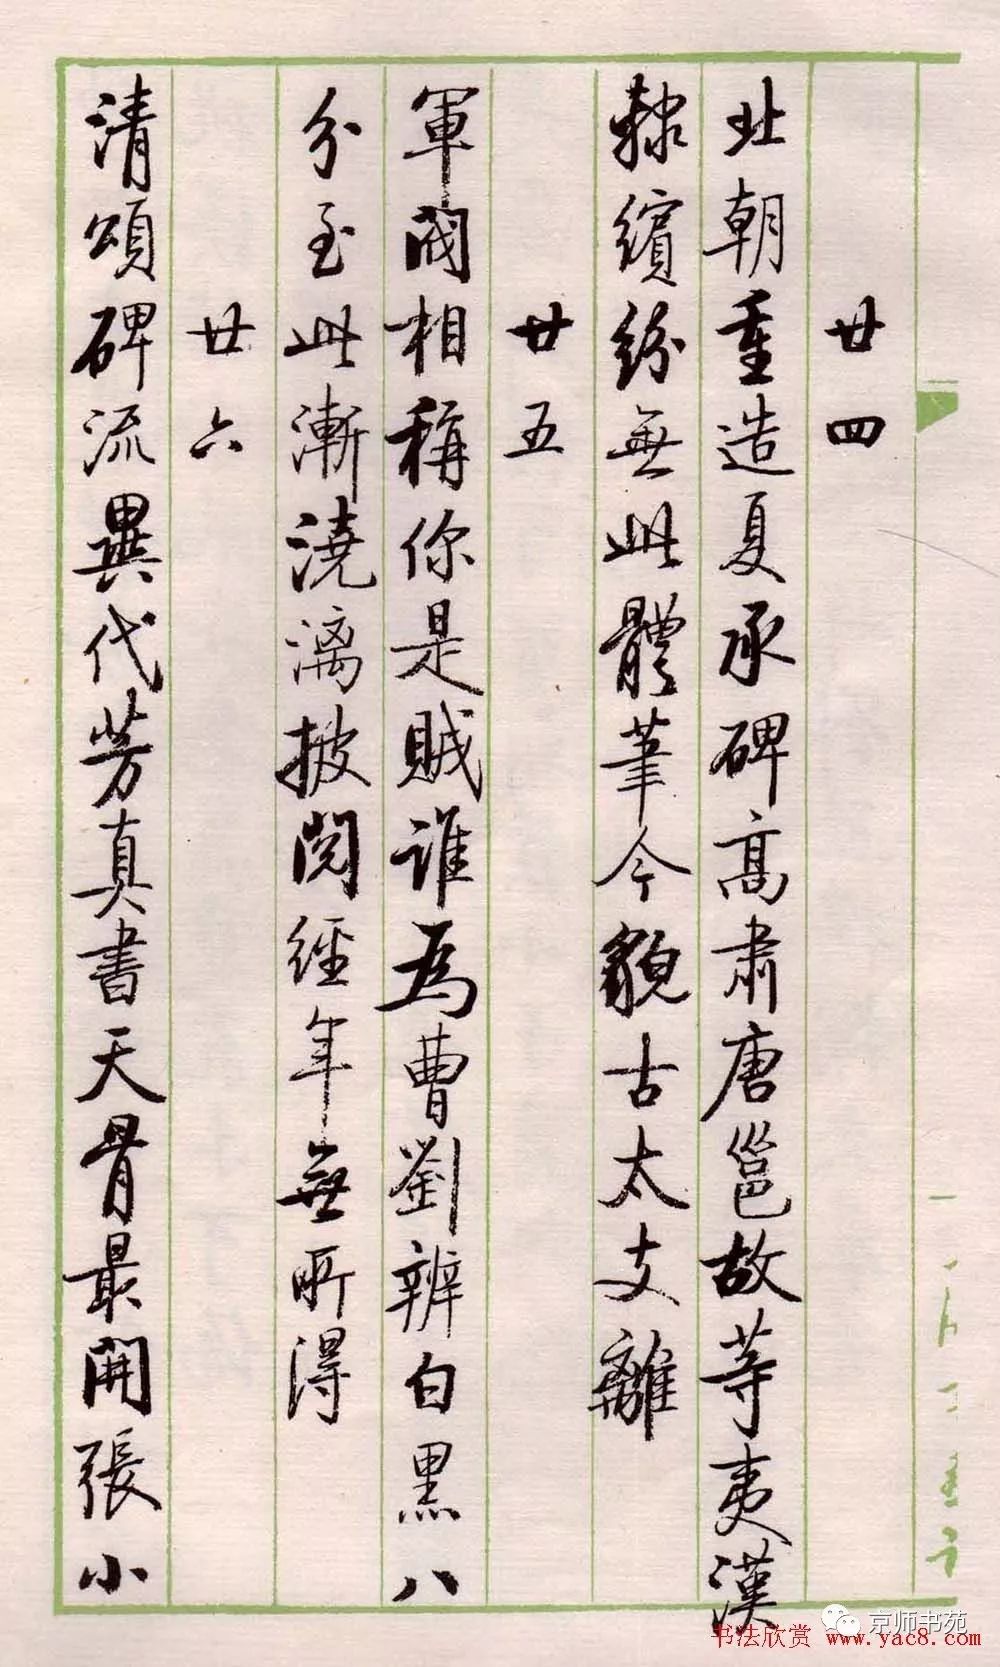 廿四
北朝重造夏承碑高肅唐邕故等夷漢
隸繽紛無此體筆今貌古太支離
廿五
軍閥相稱你是賊誰為曹劉辨白黑八
分至此漸澆漓披閱經年無所得
廿六
清頌碑流異代芳真書天骨最開張小
京师书苑
书法欣赏 www.yac8.com